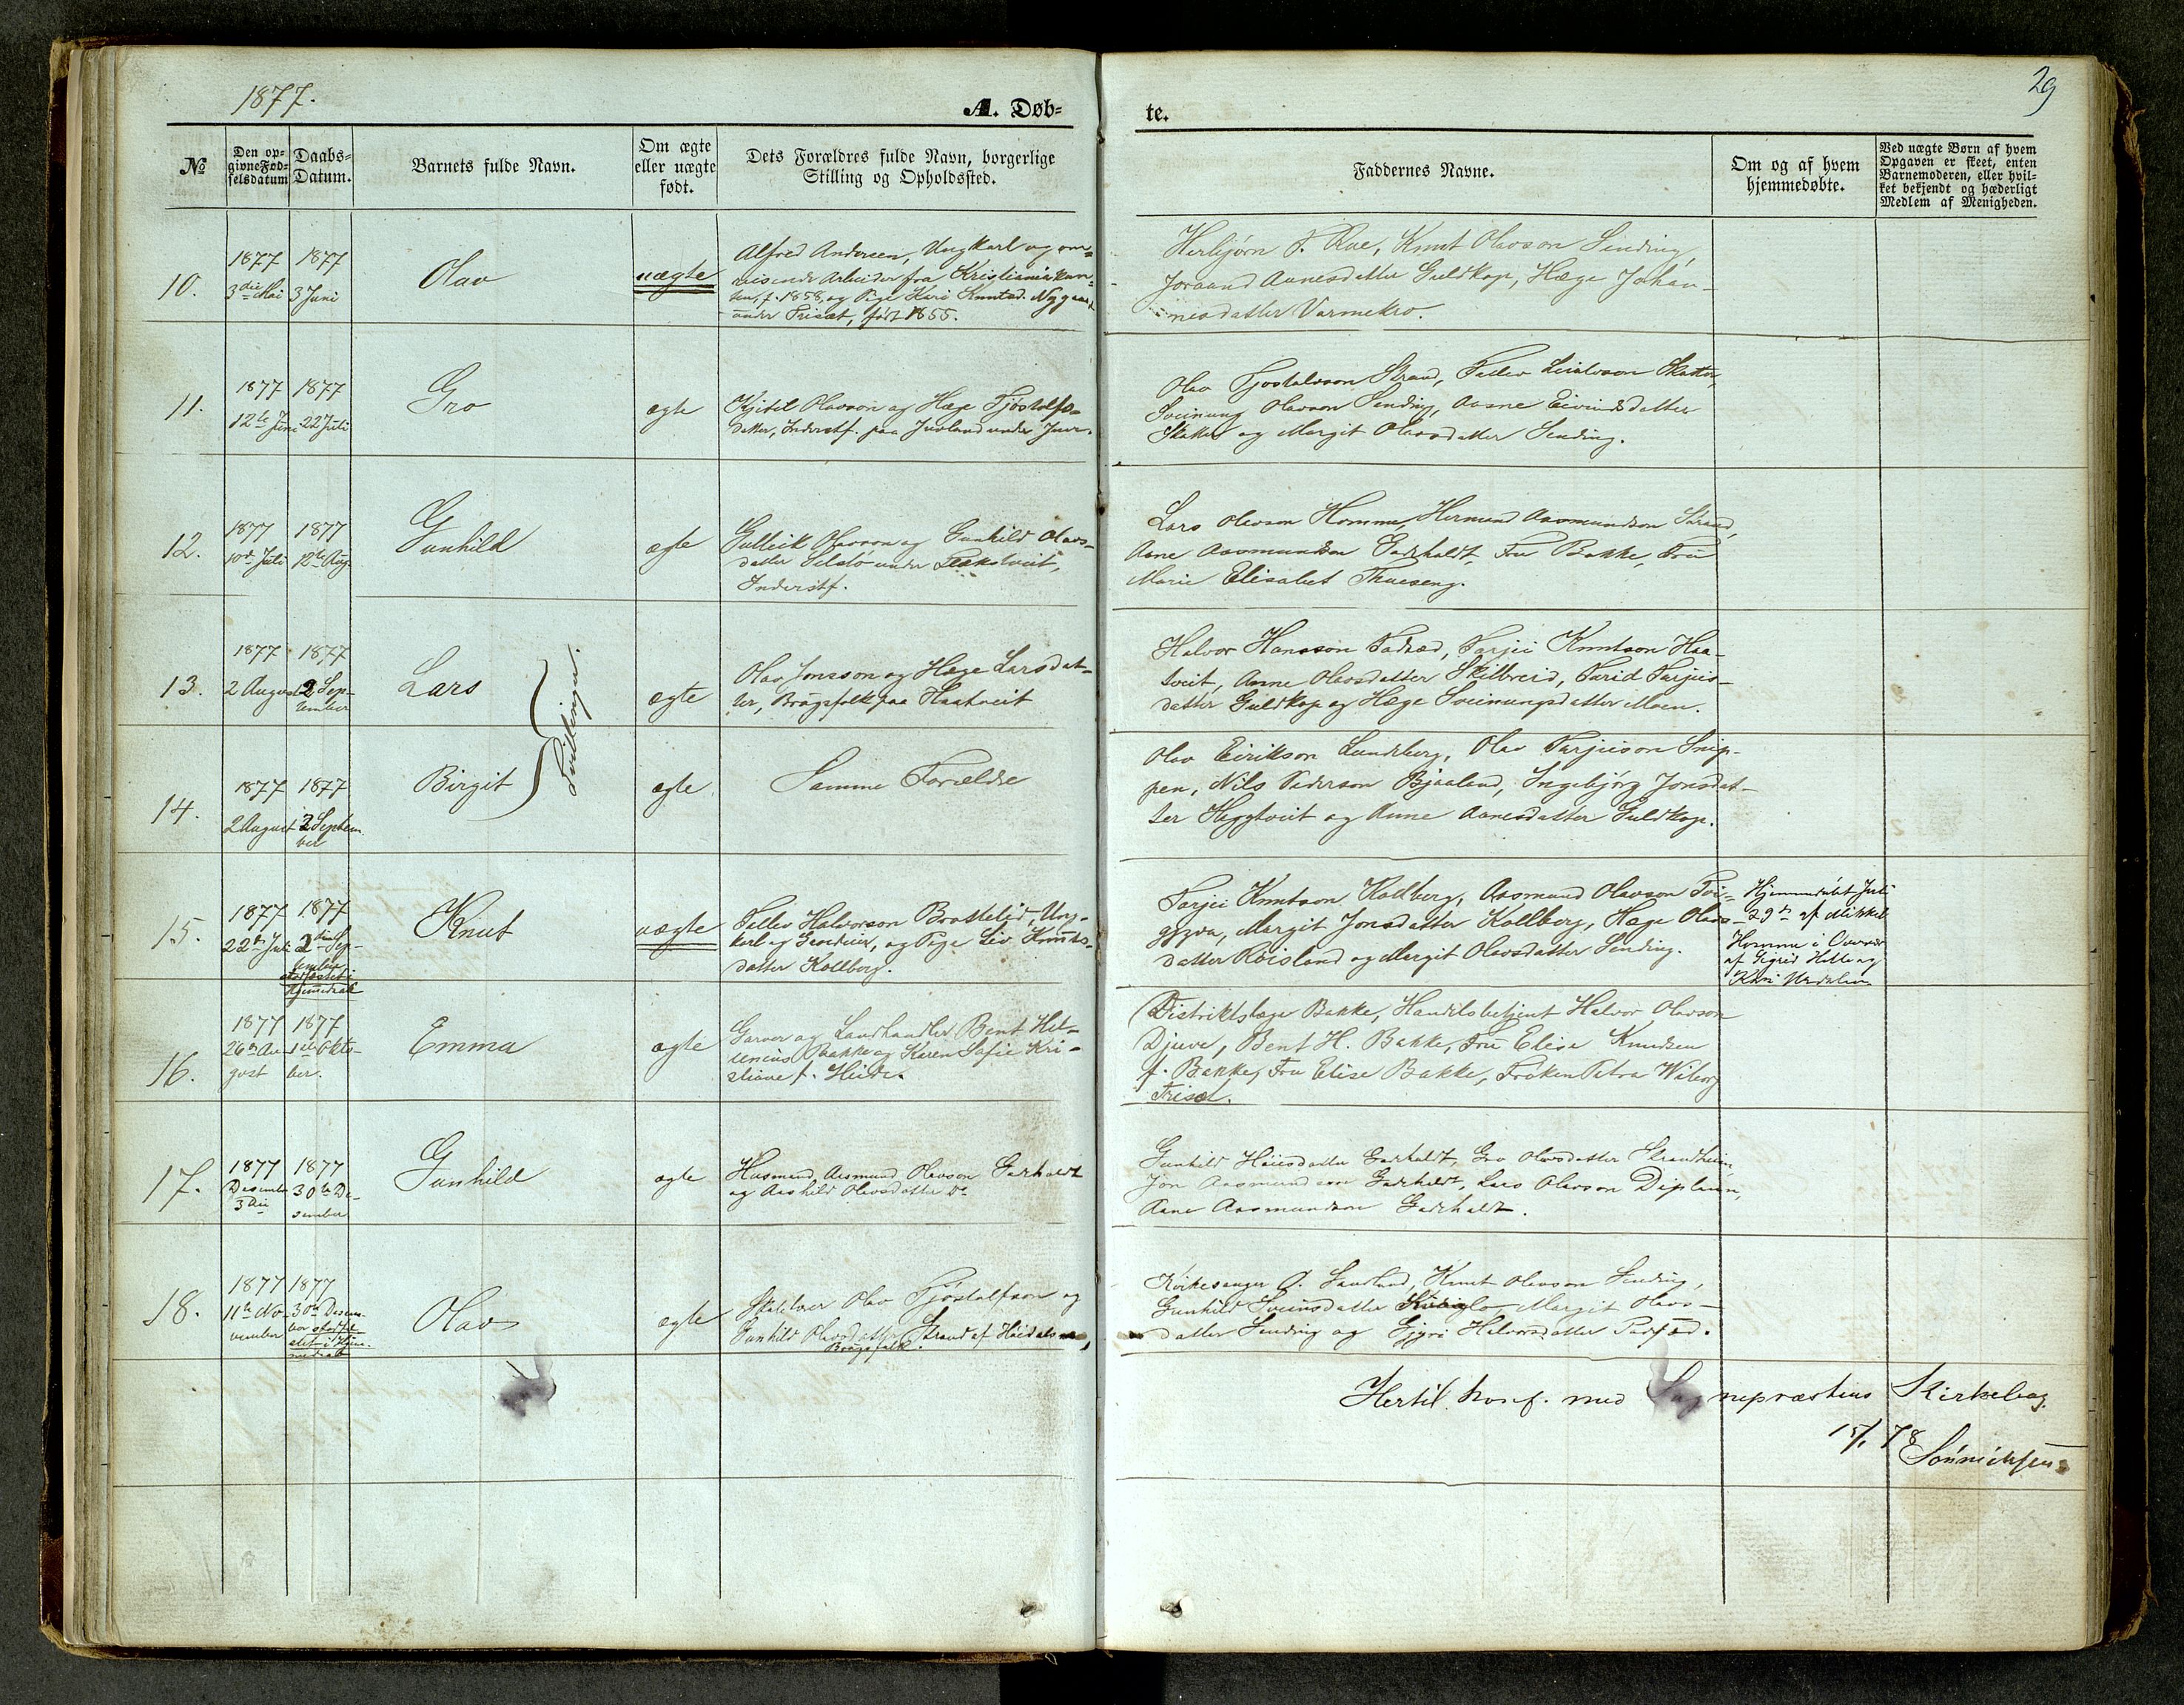 1877.
A. Døb=
te.
29
№
Den op=
givne Fød=
selsdatum
Daabs=
Datum.
Barnets fulde Navn.
Om ægte
eller uægte
født.
Dets Forældres fulde Navn, borgerlige
Stilling og Opholdssted.
Faddernes Navne.
Om og af hvem
hjemmedøbte.
Ved uægte Børn af hvem
Opgaven er skeet, enten
Barnemoderen, eller hvil=
ket bekjendt og hæderligt
Medlem af Menigheden.
10.
1877
3die Mai
1877
3 Juni
Olav
uægte
Alfred Andersen, Ungkarl og om=
reisende Arbeider fra Kristiania
f. 1858, og Pige Kari Knutsd. Nygaard
under Trisæt, født 1855.
Herbjørn S. Rue, Knut Olavson Sending,
Joraand Aanesdatter Guldkop, Hæge Johan-
nesdatter Varmekro.
11.
1877
12te Juni
1877
22 Juli
Gro
ægte
Kjetil Olavson og Hæge Tjøstolfs=
datter, Inderstf. paa Juvland under Juve.
Olav Tjostolvson Strand, Tallev Leivolvson Skatter,
Sveinung Olavson Sending, Aasne Eivindsdatter
Skatter og Margit Olavsdatter Sending.
12.
1877
10de Juli
1877
12te Aug.
Gunhild
ægte
Gulleik Olavson og Gunhild Olavs-
datter under
Inderstf.
Lars Olavson Homme, Hermund Aasmundson Strand,
Aane Aasmundson Garhaldt, Fru Bakke, Fru
Marie Elisabet Thuesang.
13.
1877
2 August
1877
2 Sep-
tember
Lars
Tvillinger.
ægte
Olav Jonsson og Hæge Larsdat-
ter, Brugsfolk paa Haatveit
Halvor Hansson Tadsæd, Tarjei Knutson Haa-
tveit, Anne Olavsdatter Skilbreid, Turid Tarjeis-
datter Guldkop og Hæge Sveinungsdatter Moen.
14.
1877
2 August
1877
2 Septem
ber
Birgit
ægte
Samme Forældre
Olav Eirikson Lundeberg, Olav Tarjeison Snip-
pen, Nils Bjaaland, Ingebjørg Jonsdat-
ter Heggtveit og Anne Aanesdatter Guldkop.
15.
1877
22de Juli
1877
2den Sep-
tember
stadfæstet i
Hjemmedaab
Knut
uægte
Tallev Halvorson Brattelid, Ung-
karl og Gaardeier, og Pige Liv Knuts-
datter Kollberg.
Tarjei Knutson Kollberg, Aasmund Olavson
Margit Jonsdatter Kollberg, Hæge Olavs-
datter Roisland og Margit Olavsdatter Sending.
Hjemmedøbt Juli
29de af Mikkel
Homme i Overvær
af Sigrid Homme og
Kari
16.
1877
26de Au-
gust
1877
1ste Okto-
ber.
Emma
ægte
Garver og Landhandler Bent
Bakke og Karen Sofie Kri-
stiane f. Heide.
Distriktslæge Bakke, Handelsbetjent Halvor Olavson
Djuve, Bent H. Bakke, Fru Elise Knudsen
f. Bakke, Fru Elise Bakke, Frøken Petra Wiborg
Trisæt.
17.
1877
Desember
3die
1877
30te De-
sember
Gunhild
ægte
Husmand Aasmund Olavson Garhaldt
og Aashild Olavsdatter Do
Gunhild datter Garhaldt, Gro Olavsdatter Strandheim,
Jon Aasmundson Garhaldt, Lars Olavson
Aane Aasmundson Garhaldt.
18.
1877
11te No-
vember
1877
30te Desem-
ber stadfæ-
stet i Hjem-
medaab
Olav
ægte
Olav Tjøstolfson og
Gunhild Olavsdatter Strand af Høidalsmo,
Brugsfolk.
Kirkesanger O. Sandland, Knut Olavson Sending,
Gunhild Sveinsdatter Margit Olavs-
datter Sending og Gyro Halvorsdatter
Hertil konf. med Sognepræstens Kirkebog.
15/1 78
Sönnichsen